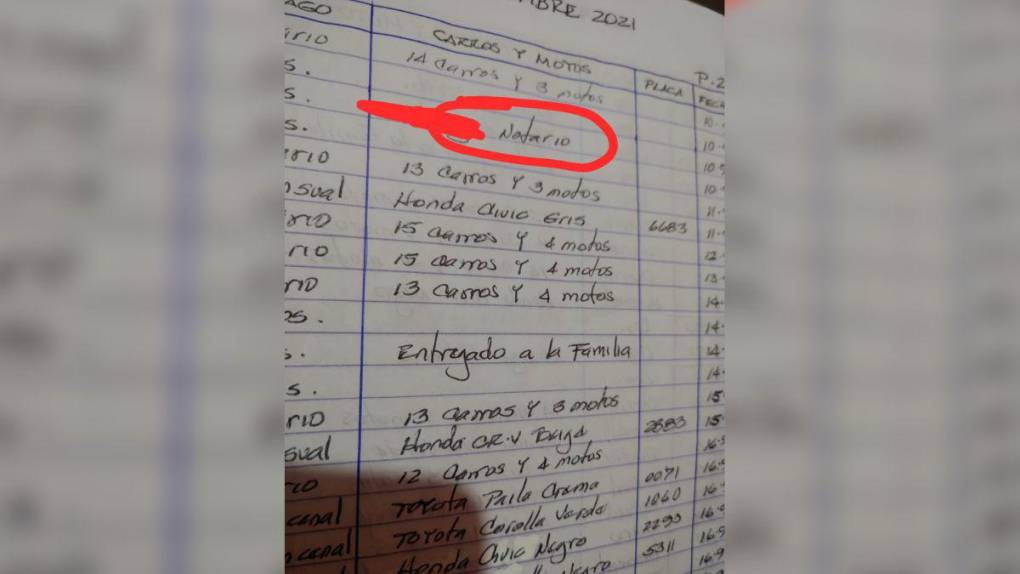 MBRE 2021
AGO CARROS Y MOTOS PLACA P.2
ario 14 Carros Y 3 motos FECH
s. 10.
s. Notario 10.
s. 10.
ario 13 Carros Y 3 motos 10.
nsual Honda Civic Gris 6683 11.
ario 15 Carros Y 4 motos 11.
rio 15 Carros Y 4 motos 12.
rio 13 Carros Y 4 motos 13.
os. 14.
s. Entregado a la Familia 14.
s. 14.
rio 13 Carros Y 3 motos 15
sual Honda CR.V 2883 15
io 12 Carros Y 4 motos 16.
canal Toyota Paila Crema 0071 16.
canal Toyota Corolla Verde 1060 16.
Honda Civic Negro 2293 16.9
Negro 5311 16.9